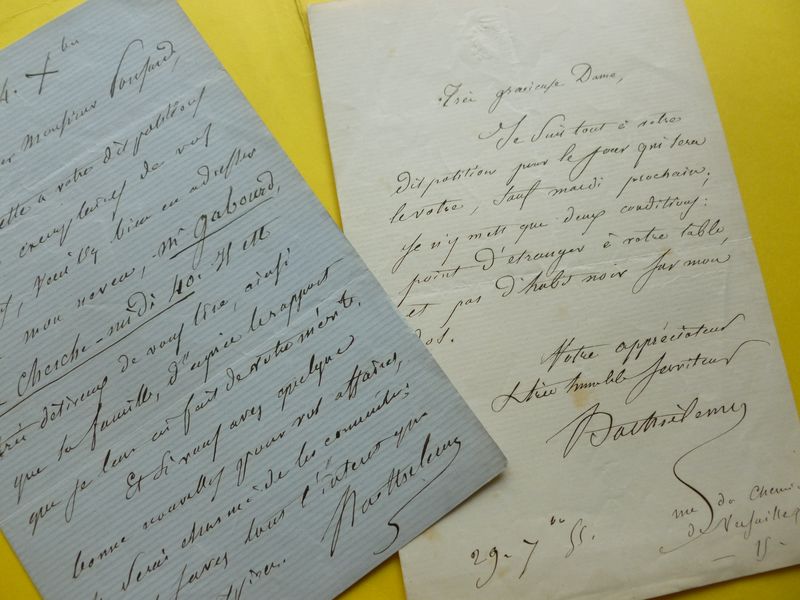 4. Xbre
Monsieur Ponsard,
à votre disposition
exemplaires de vos
bien en adresser
mon neveu, Mr Gabourd,
Cherche-midi 40. Il est
très désireux de vous lire, ainsi
que sa famille, d'après le rapport
que je leur ai fait de votre mérite.
Et si vous avez quelque
bonne nouvelle pour vos affaires,
Serai charmé de les connaître;
Savez tout l'intérêt que
Barthélemy
Très gracieuse Dame,
Je suis tout à votre
disposition pour le jour qui sera
le votre, sauf mardi prochain;
Je n'y mets que deux conditions;
point d'étranger à votre table,
et pas d'habit noir sur mon
dos.
Votre appréciateur
& très humble serviteur
Barthélemy
29. 7bre 55.
rue du Chemin
de Versailles
- 15 -